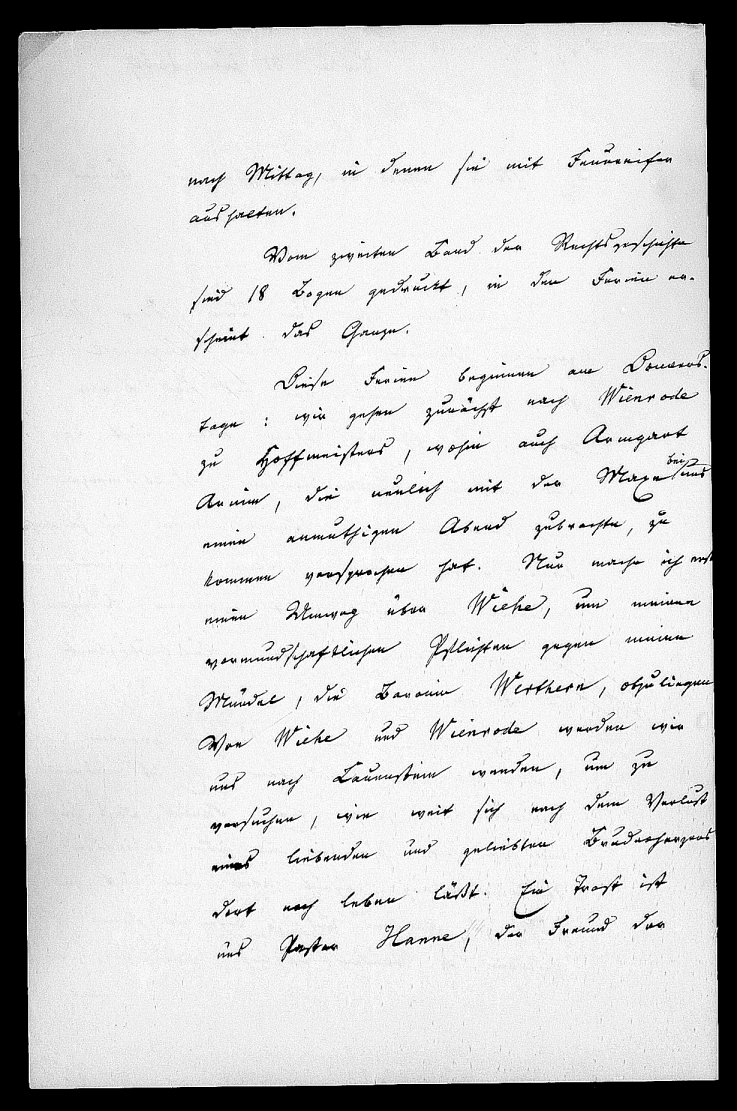 nach Mittag, in denen sie mit Feuereifer
aushalten.
Vom zweiten Band der Rechtsgeschichte
sind 18 Bogen gedruckt, in den Ferien er-
scheint das Ganze.
Diese Ferien beginnen am Donners-
tage: wir gehen zunächst nach Wienrode
zu Hoffmeisters, wohin auch Armgart
Arnim, die neulich mit der Maxe bei uns
einen anmuthigen Abend zubrachte, zu
kommen versprochen hat. Nur mache ich erst
einen Umweg über Wiehe, um meinen
vormundschaftlichen Pflichten gegen meine
Mündel, die Baronin Werthern, obzuliegen
Von Wiehe und Wienrode werden wir
uns nach Lauenstein wenden, um zu
versuchen, wie weit sich nach dem Verlust
eines liebenden und geliebten Bruderherzens
dort noch leben läßt. Ein Trost ist
uns Pastor Hanne, der Freund der